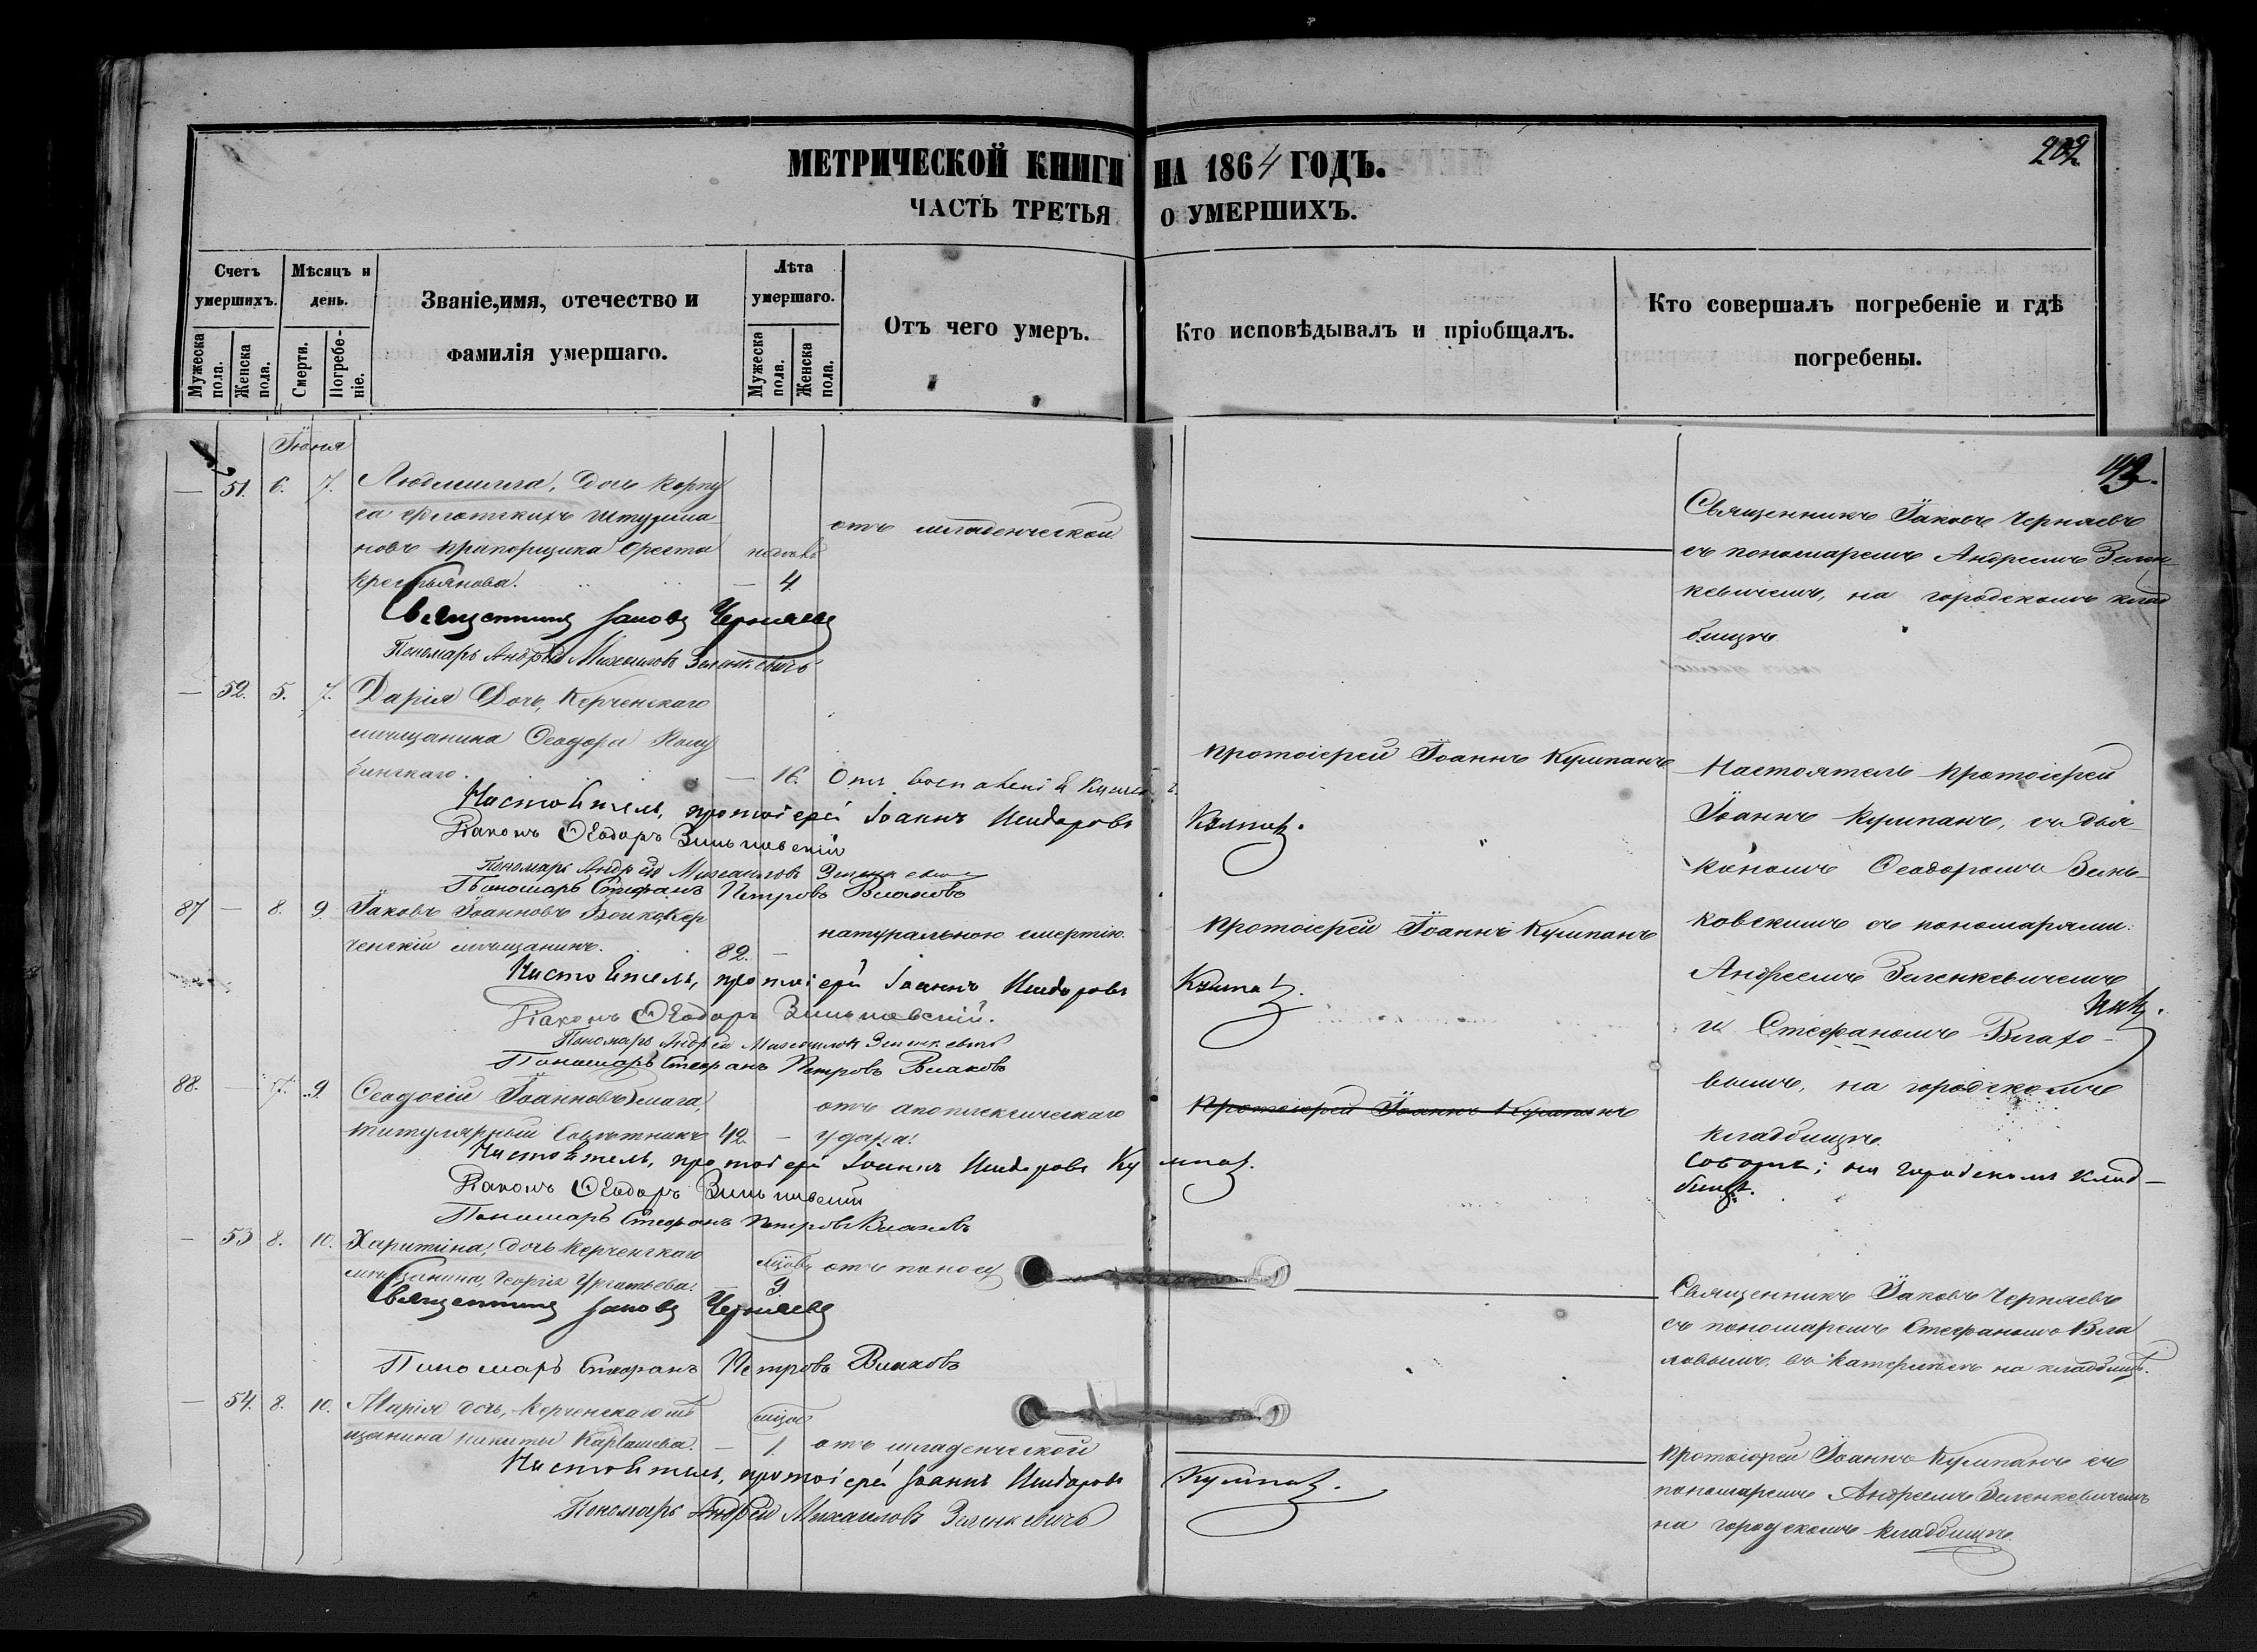 МЕТРИЧЕСКОЙ КНИГИ НА 1864 ГОДЪ.
202
ЧАСТЬ ТРЕТЬЯ О УМЕРШИХЪ.
Счетъ умершихъ.
Мужеска пола.
Женска пола.
Мѣсяцъ и день.
Смерти.
Погребеніе.
Званіе, имя, отечество и фамилія умершаго.
Лѣта умершаго.
Мужеска пола.
Женска пола.
Отъ чего умеръ.
Кто исповѣдывалъ и пріобщалъ.
Кто совершалъ погребеніе и гдѣ погребены.
Іюня
— 51. 6. 7. Людмилла, дочь корпу
са флотскихъ штурма
новъ прапорщика Ореста
Крестьянова. — 4.
отъ младенческой
Священникъ Іаковъ Черняевъ
съ пономаремъ Андреемъ Зелен
кевичемъ, на городскомъ клад
бищѣ
Священникъ Іаковъ Черняевъ
Пономарь Андрей Михаиловъ Зеленкевичъ
— 52. 5. 7. Дарія дочь, Керченскаго
мѣщанина Ѳеодора
бинскаго. — 16. Отъ воспаленія
Протоіерей Іоаннъ Кумпанъ
Настоятель, протоіерей Іоаннъ Исидоровъ Кумпанъ.
Діаконъ Ѳеодоръ Зиньковскій
Пономарь Андрей Михаиловъ Зеленкевичъ
Пономарь Стефанъ Петровъ Влаховъ
Настоятель протоіерей
Іоаннъ Кумпанъ, съ дья
кономъ Ѳеодоромъ Зинь
ковскимъ съ пономарями:
Андреемъ Зеленкевичемъ
и Стефаномъ Влахо
вымъ, на городскомъ
кладбищѣ.
87 — 8. 9. Іаковъ Іоанновъ Кер
ченскій мѣщанинъ. 82. —
натуральною смертію.
Протоіерей Іоаннъ Кумпанъ
Настоятель, протоіерей Іоаннъ Исидоровъ Кумпанъ.
Діаконъ Ѳеодоръ Зиньковскій.
Пономарь Андрей Михаиловъ Зеленкевичъ
Пономарь Стефанъ Петровъ Влаховъ
88. — 7. 9. Ѳеодосій Іоанновъ
титулярный Совѣтникъ 42. —
отъ апоплексическаго
удара.
Протоіерей Іоаннъ Кумпанъ
Настоятель, протоіерей Іоаннъ Исидоровъ Кумпанъ.
Діаконъ Ѳеодоръ Зиньковскій
Пономарь Стефанъ Петровъ Влаховъ
на городскомъ клад
бищѣ.
— 53 8. 10. Харитина, дочь Керченскаго
мѣщанина, Георгія
9 отъ поносу
Священникъ Іаковъ Черняевъ
Пономарь Стефанъ Петровъ Влаховъ
Священникъ Іаковъ Черняевъ
съ пономаремъ Стефаномъ Вла
ховымъ, на кладбищѣ.
— 54. 8. 10. Марія дочь, Керченскаго мѣ
щанина Никиты Карташева. — 1. отъ младенческой
Настоятель, протоіерей Іоаннъ Исидоровъ Кумпанъ.
Пономарь Андрей Михаиловъ Зеленкевичъ
Протоіерей Іоаннъ Кумпанъ съ
пономаремъ Андреемъ Зеленкевичемъ
на городскомъ кладбищѣ.